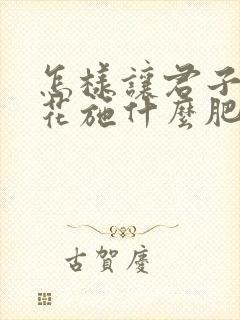 怎樣讓君子
花施什麼肥
古賀慶